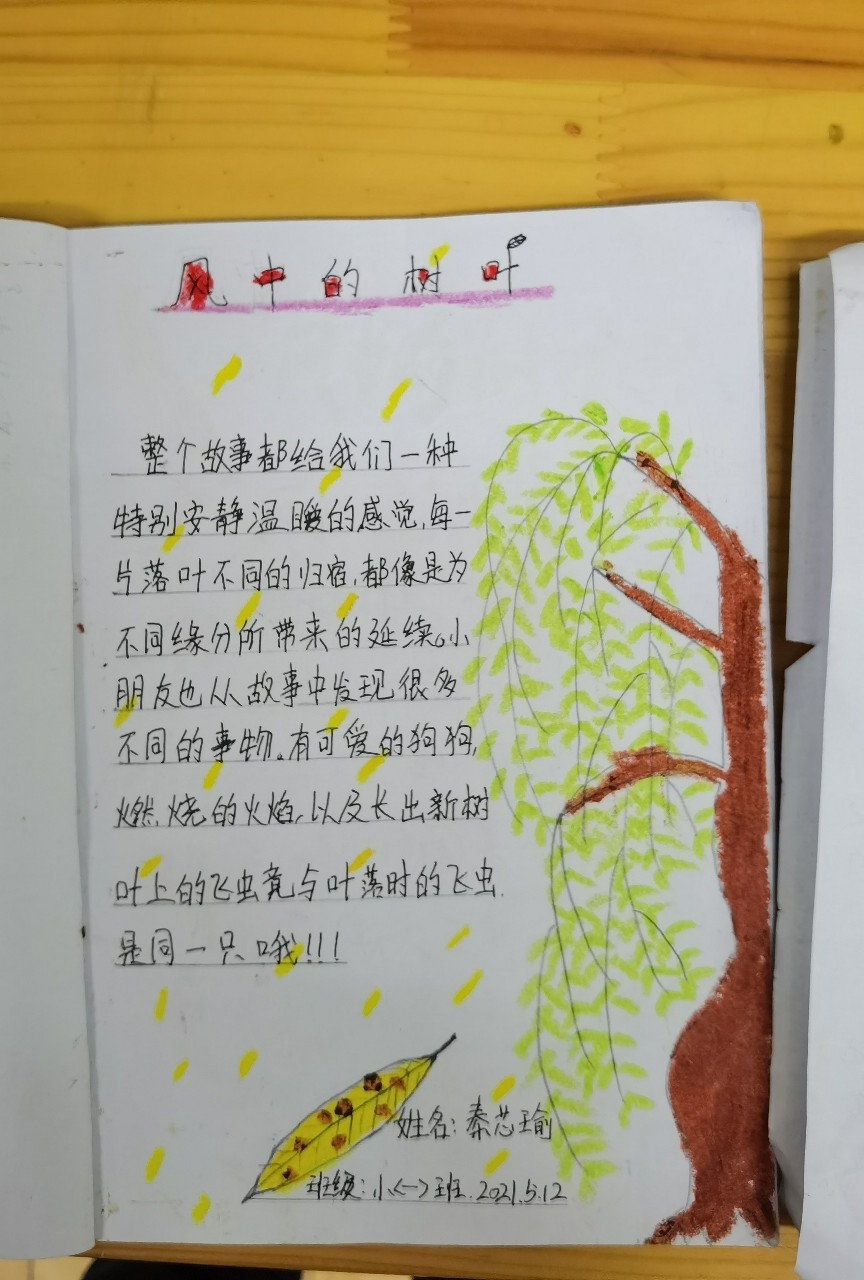 风中的树叶
整个故事都给我们一种
特别安静温暖的感觉,每一
片落叶不同的归宿,都像是为
不同缘分所带来的延续。小
朋友也从故事中发现很多
不同的事物。有可爱的狗狗,
燃烧的火焰,以及长出新树
叶上的飞虫竟与叶落时的飞虫.
是同一只哦!!!
姓名:秦芯瑜
班级:小<一>班.2021.5.12